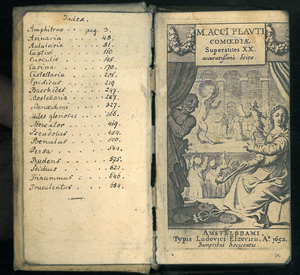 Index.
Amphitruo . . . pag. 3.
Asinaria . . . . 48.
Aulularia . . . . 81.
Captivi . . . . 110.
Curculio . . . . 145.
Casina . . . . 170.
Cistellaria . . . . 204.
Epidicus . . . . 219.
Bacchides . . . . 247.
Mostellaria . . . . 287.
Menaechmi . . . . 327.
Miles gloriosus . . .
Mercator . . . . 419.
Pseudolus . . . . 454.
Poenulus . . . . 500.
Persa . . . . 544.
Rudens . . . . 575.
Stichus . . . . 621.
Trinummus . . . . 646.
Truculentus . . . . 684.
M. ACCI PLAUTI
COMOEDIÆ
Superstites XX.
accuratissime editæ.
AMSTELODAMI,
Typis Ludovici Elzevirii, Aº 1652.
Sumptibus Societatis.